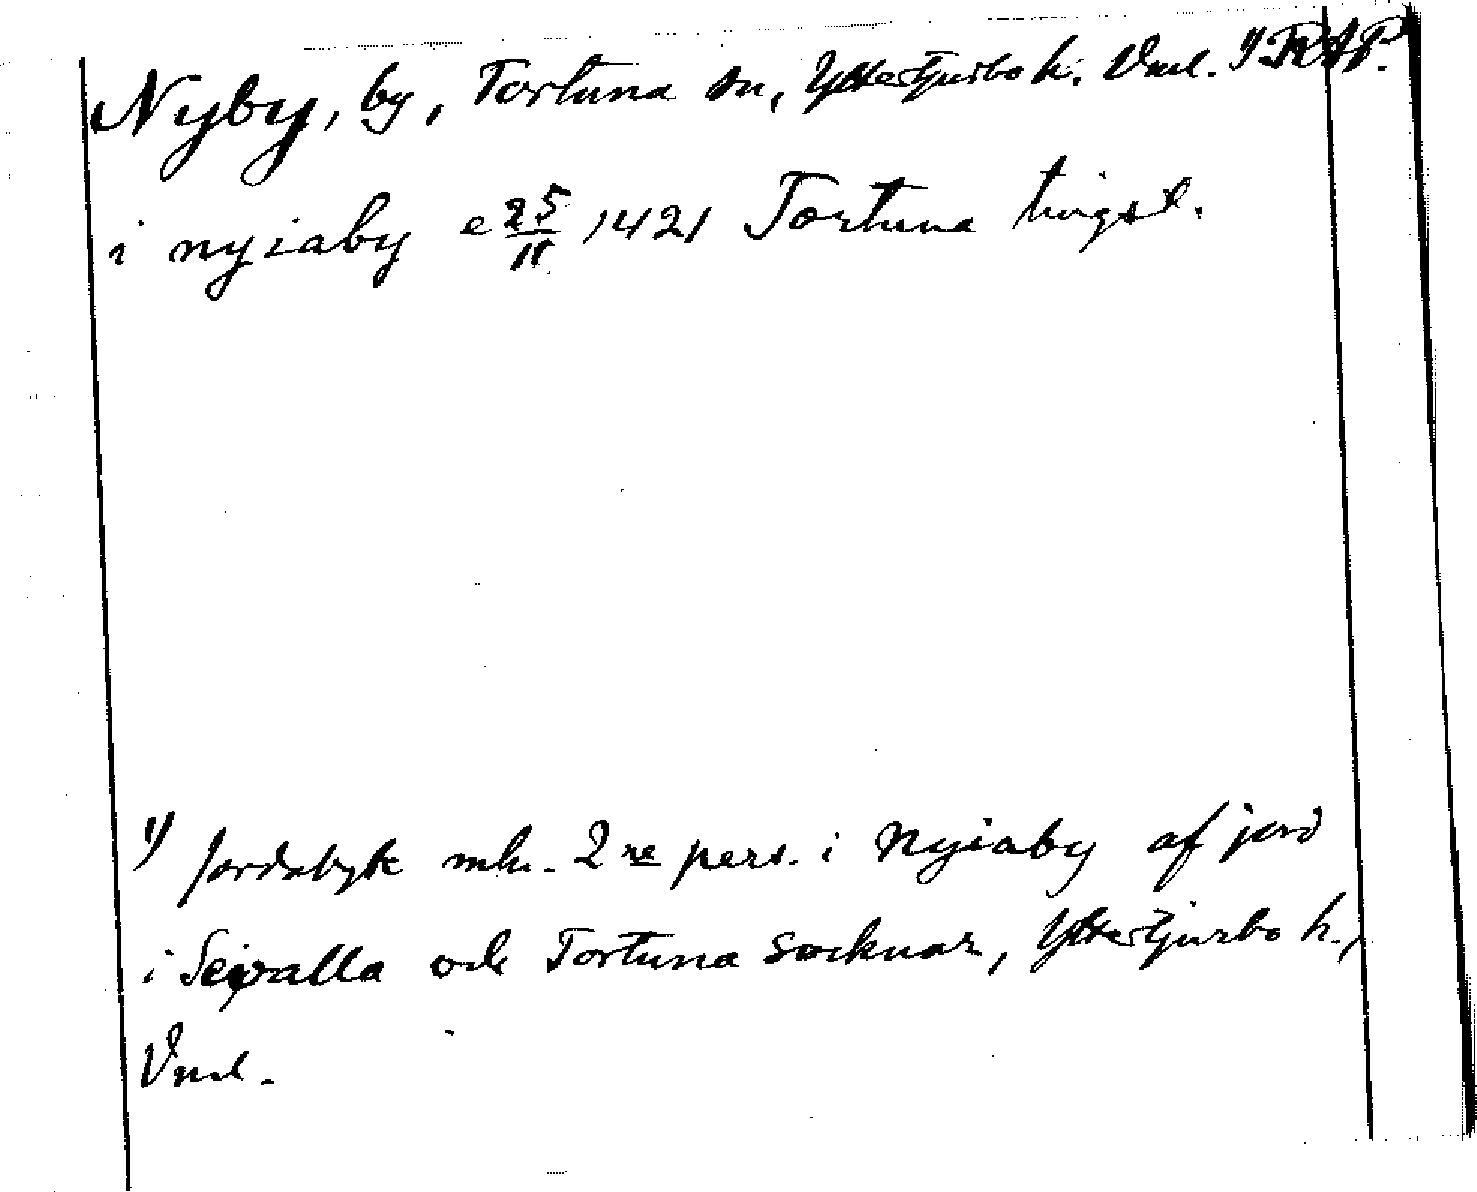 Nyby, by, Tortuna sn, Yttertjurbo h. Vml. 1) RAP.
i nyiaby e 25/11 1421 Tortuna tingst.
1) Jordabyte mln. 2ne pers. i Nyiaby af jord
i Sevalla och Tortuna socknar, Yttertjurbo h.,
Vml.